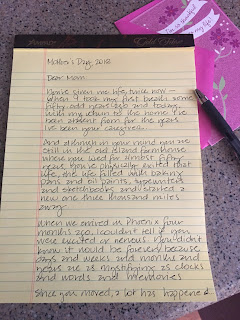 Mother's Day, 2018
Dear Mom,
You've given me life, twice now —
when I took my first breath some
fifty-odd years ago and today
with my return to the home I've
been absent from for the years
I've been your caregiver.
And although in your mind you're
still in the old island farmhouse
where you lived for almost fifty
years, you've physically exited that
life, the life filled with baking
pans and oil paints, typewriters
and sketchbooks and started a
new one three thousand miles
away.
When we arrived in Phoenix four
months ago, I couldn't tell if you
were excited or nervous. You didn't
know it would be forever because
days and weeks and months and
years are as mystifying as clocks
and words and
Since you moved, a lot has happened.